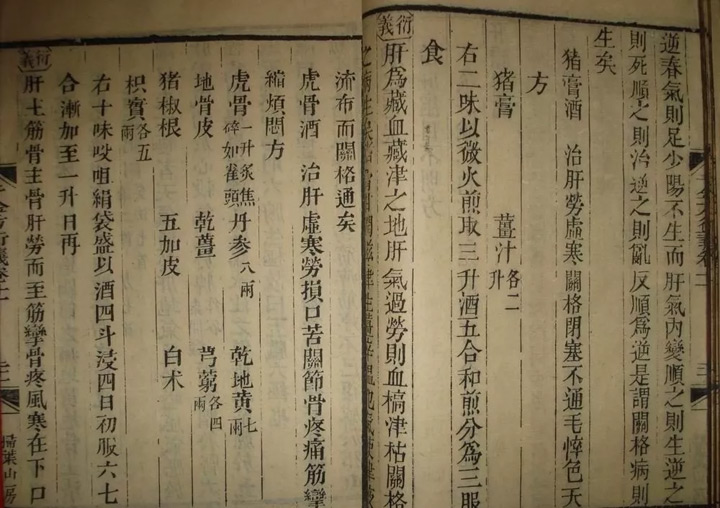 逆春氣則足少陽不生而肝氣內變順之則生逆之
則死順之則治逆之則亂反順爲逆是謂關格病則
生矣
猪膏酒 治肝勞虛寒關格閉塞不通毛悴色夭
方
猪膏 薑汁各二升
右二味以微火煎取三升酒五合和煎分爲三服
食
衍義
肝爲藏血藏津之地肝氣過勞則血槁津枯關格
流布而關格通矣
虎骨酒 治肝虛寒勞損口苦關節骨疼痛筋攣
縮煩悶方
虎骨一升炙焦碎如雀頭 丹參八兩 乾地黄七兩
地骨皮 乾薑 芎藭各四兩
猪椒根 五加皮 白术
枳實各五兩
右十味㕮咀絹袋盛以酒四斗浸四日初服六七
合漸加至一升日再
衍義
肝主筋骨主骨肝勞而至筋攣骨疼風寒在下口
掃葉山房